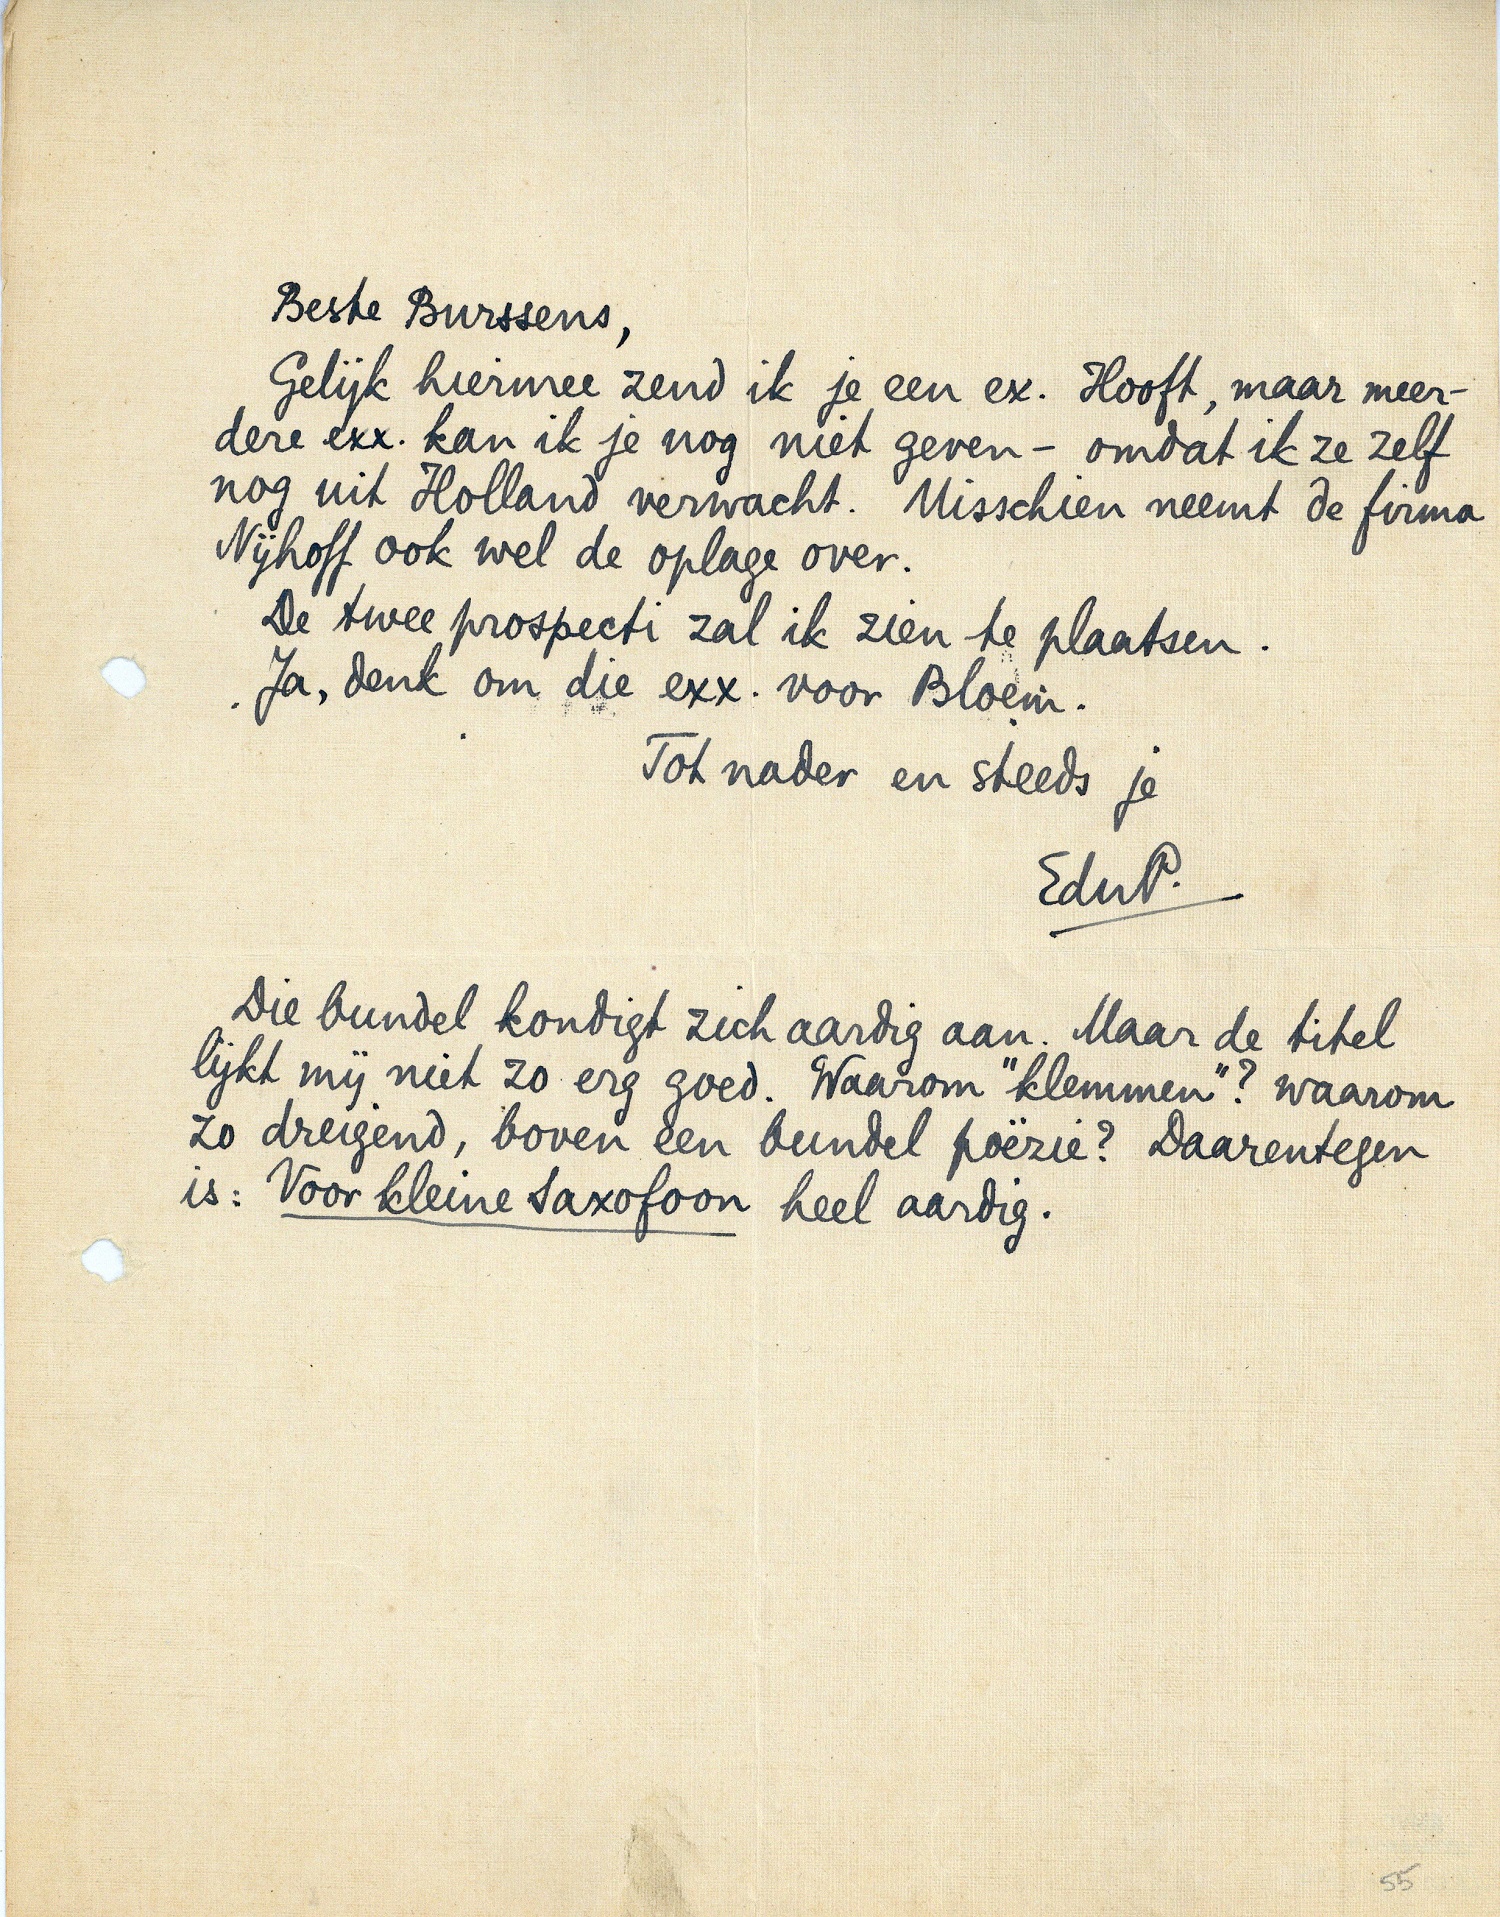 Beste Burssens,
Gelijk hiermee zend ik je een ex. Hooft, maar meer-
dere exx. kan ik je nog niet geven – omdat ik ze zelf
nog uit Holland verwacht. Misschien neemt de firma
Nijhoff ook wel de oplage over.
De twee prospecti zal ik zien te plaatsen.
Ja, denk om die exx. voor Bloem.
Tot nader en steeds je
EduP.
Die bundel kondigt zich aardig aan. Maar de titel
lijkt mij niet zo erg goed. Waarom "klemmen"? waarom
zo dreigend, boven een bundel poëzie? Daarentegen
is: Voor kleine Saxofoon heel aardig.
55